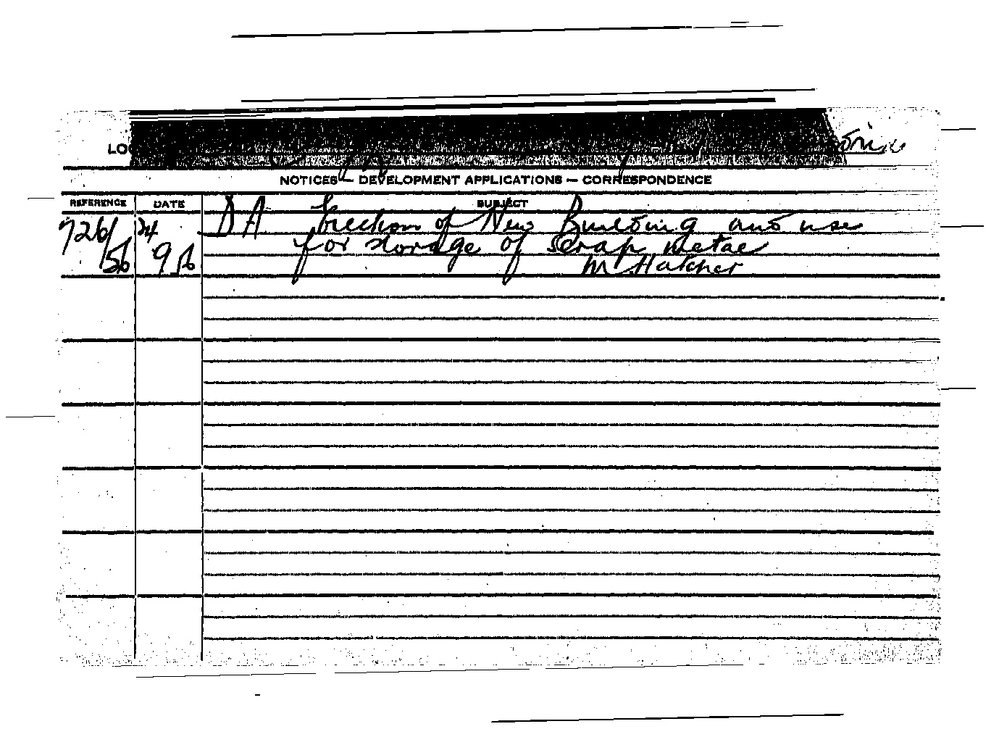 LO
NOTICES — DEVELOPMENT APPLICATIONS — CORRESPONDENCE
REFERENCE DATE SUBJECT
726/56 24 9 56 DA Erection of New Building and use
for storage of scrap metal
M Hatcher